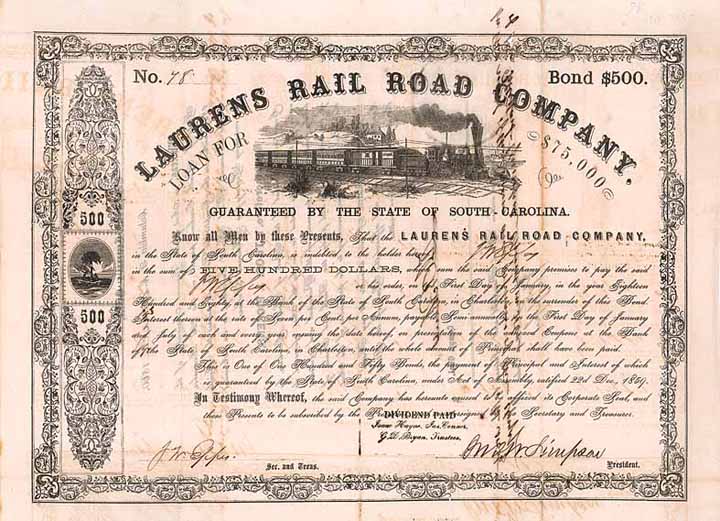 No. 78
Bond $500.
LAURENS RAIL ROAD COMPANY.
LOAN FOR $75.000
GUARANTEED BY THE STATE OF SOUTH-CAROLINA.
500
500
Know all Men by these Presents, That the LAURENS RAIL ROAD COMPANY,
in the State of South Carolina, is indebted to the holder hereof
in the sum of FIVE HUNDRED DOLLARS, which sum the said Company promises to pay the said
or his order, on the First Day of January, in the year Eighteen
Hundred and Eighty, at the Bank of the State of South Carolina, in Charleston, on the surrender of this Bond.
Interest thereon at the rate of Seven per Cent. per Annum, payable Semi annually, on the First Day of January
and July of each and every year, ensuing the date hereof on presentation of the annexed Coupons at the Bank
of the State of South Carolina, in Charleston, until the whole amount of Principal shall have been paid.
This is One of One Hundred and Fifty Bonds, the payment of Principal and Interest of which
is guaranteed by the State of South Carolina, under Act of Assembly, ratified 22d Dec. 1859.
In Testimony Whereof, the said Company has hereunto caused to be affixed its Corporate Seal, and
these Presents to be subscribed by the countersigned by the Secretary and Treasurer.
DIVIDEND PAID
Isaac Hayne, Jas. Conner,
G.D. Bryan, Trustees.
Simpson
Sec. and Treas.
President.